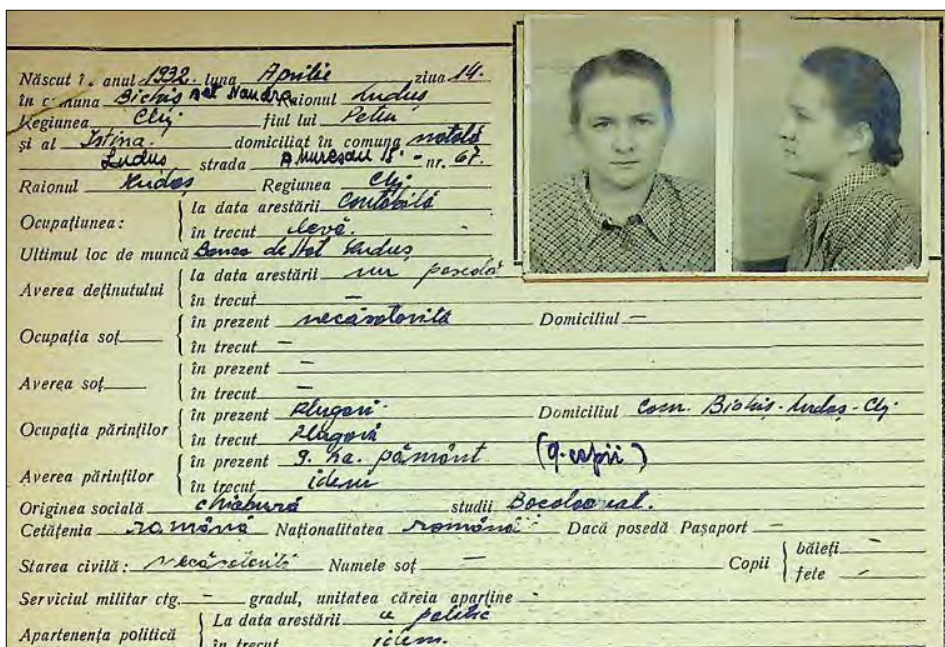 Născut î. anul 1932 luna Aprilie ziua 14.
în comuna Bichiș Raionul Luduș
Regiunea Cluj fiul lui Petru
și al Istina domiciliat în comuna
Luduș strada A Mureșau nr. 67.
Raionul Luduș Regiunea Cluj
Ocupațiunea: la data arestării Contabilă
în trecut elevă.
Ultimul loc de muncă Banca de Stat Luduș
Averea deținutului la data arestării nu posedă
în trecut —
Ocupația soț în prezent necăsătorită Domiciliul —
în trecut —
Averea soț în prezent —
în trecut —
Ocupația părinților în prezent Plugari Domiciliul Com. Bichiș-Luduș-Cluj
în trecut Plugari
Averea părinților în prezent 9. ha. pămînt (9 copii)
în trecut idem
Originea socială chiabură studii Bacalaureat.
Cetățenia română Naționalitatea română Dacă posedă Pașaport —
Starea civilă: necăsătorită Numele soț — Copii băieți —
fete —
Serviciul militar ctg. — gradul, unitatea căreia aparține -
Apartenența politică La data arestării politic
în trecut idem.